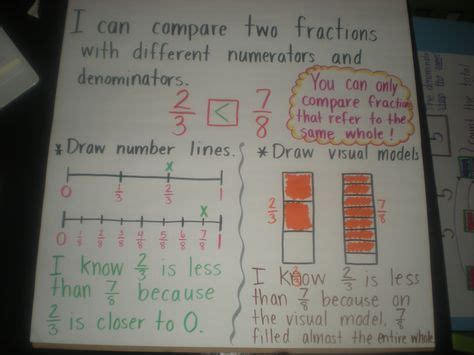 I can compare two fractions
with different numerators and
denominators.
2/3 < 7/8
You can only
compare fractions
that refer to the
same whole!
* Draw number lines.
x
0 1/3 2/3 1
x
0 1/8 2/8 3/8 4/8 5/8 6/8 7/8 1
I know 2/3 is less
than 7/8 because
2/3 is closer to 0.
* Draw visual models
2/3 7/8
I know 2/3 is less
than 7/8 because on
the visual model, 7/8
filled almost the entire whole